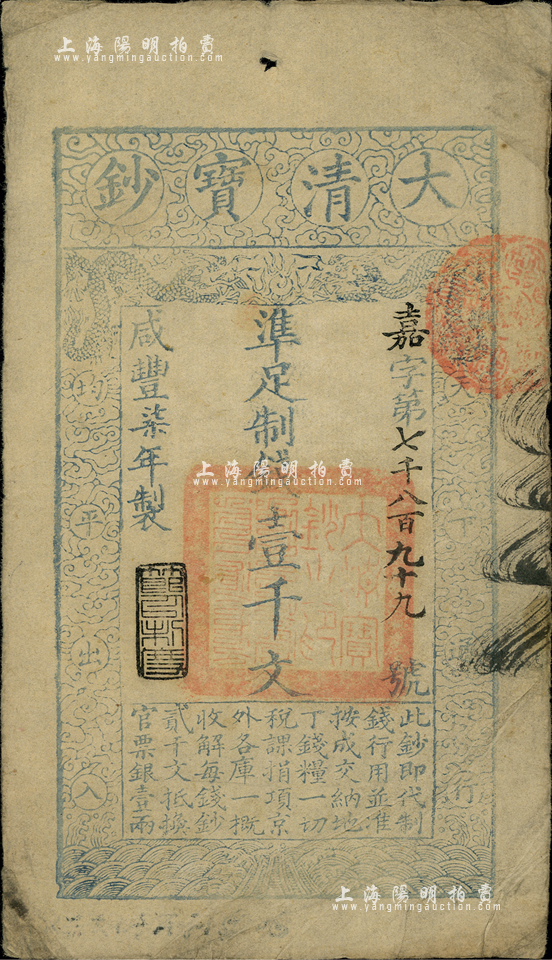 上海陽明拍賣
www.yangmingauction.com
大清寶鈔
天下通行
嘉字第七千八百九十九號
準足制錢壹千文
咸豐柒年製
均平出入
此鈔即代制
錢行用並准
按成交納地
丁錢糧一切
稅課捐項京
外各庫一概
收解每錢鈔
貳千文抵換
官票銀壹兩
上海陽明拍賣
www.yangmingauction.com
上海陽明拍賣
www.yangmingauction.com